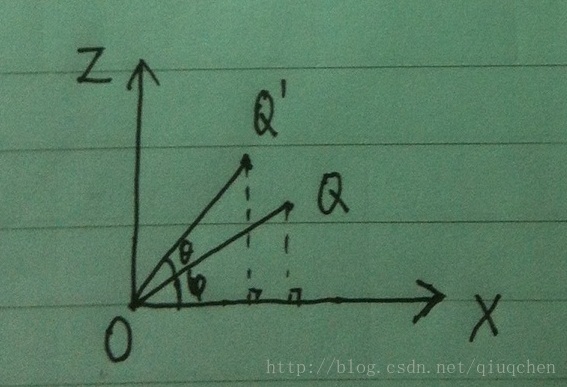 Z
Q'
Q
θ
φ
O
X
http://blog.csdn.net/qiuqchen